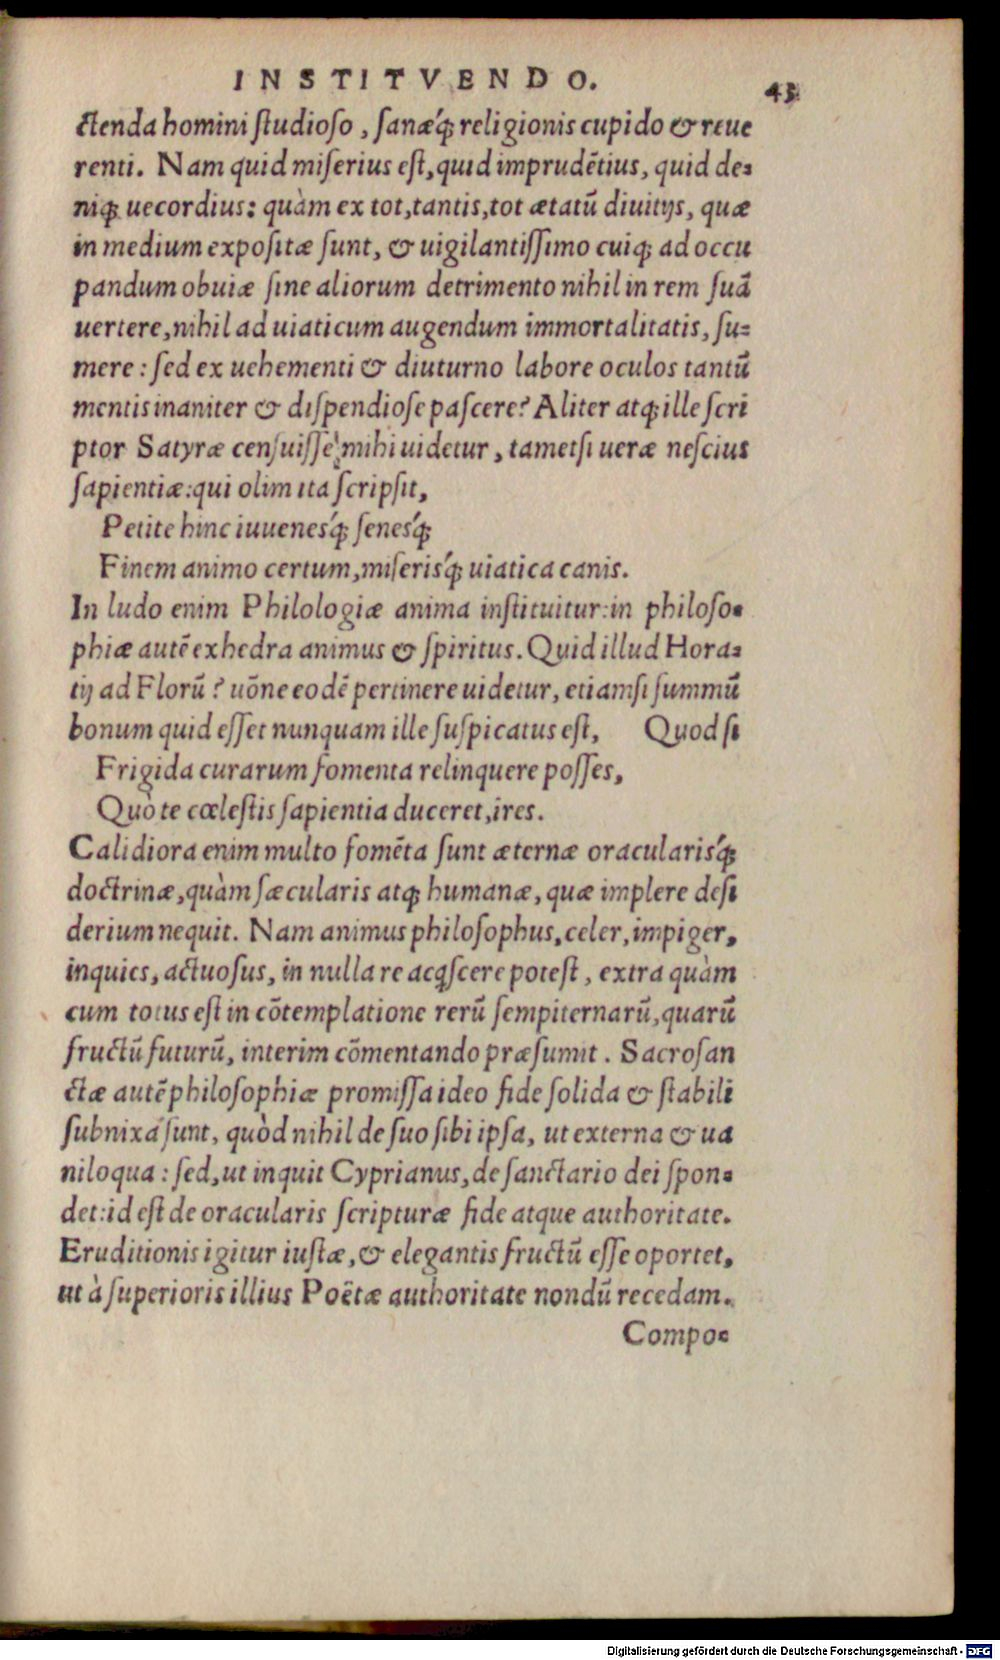 INSTITVENDO.
43
ctenda homini ſtudioſo, ſanæq́ꝫ religionis cupido & reue
renti. Nam quid miſerius eſt, quid imprudẽtius, quid de-
niqꝫ uecordius: quàm ex tot, tantis, tot ætatũ diuitijs, quæ
in medium expoſitæ ſunt, & uigilantiſſimo cuiqꝫ ad occu
pandum obuiæ ſine aliorum detrimento nihil in rem ſuã
uertere, nihil ad uiaticum augendum immortalitatis, ſu-
mere: ſed ex uehementi & diuturno labore oculos tantũ
mentis inaniter & diſpendioſe paſcere? Aliter atqꝫ ille ſcri
ptor Satyræ cenſuiſſe mihi uidetur, tametſi ueræ neſcius
ſapientiæ: qui olim ita ſcripſit,
Petite hinc iuuenesq́ꝫ ſenesq́ꝫ
Finem animo certum, miſerisq́ꝫ uiatica canis.
In ludo enim Philologiæ anima inſtituitur: in philoſo-
phiæ autẽ exhedra animus & ſpiritus. Quid illud Hora-
tij ad Florũ? nõne eodẽ pertinere uidetur, etiamſi ſummũ
bonum quid eſſet nunquam ille ſuſpicatus eſt, Quod ſi
Frigida curarum fomenta relinquere poſſes,
Quò te cœleſtis ſapientia duceret, ires.
Calidiora enim multo fomẽta ſunt æternæ oracularisq́ꝫ
doctrinæ, quàm ſæcularis atqꝫ humanæ, quæ implere deſi
derium nequit. Nam animus philoſophus, celer, impiger,
inquies, actuoſus, in nulla re acq̃ſcere poteſt, extra quàm
cum totus eſt in cõtemplatione rerũ ſempiternarũ, quarũ
fructũ futurũ, interim cõmentando præſumit. Sacroſan
ctæ autẽ philoſophiæ promiſſa ideo fide ſolida & ſtabili
ſubnixa ſunt, quòd nihil de ſuo ſibi ipſa, ut externa & ua
niloqua: ſed, ut inquit Cyprianus, de ſanctario dei ſpon-
det: id eſt de oracularis ſcripturæ fide atque authoritate.
Eruditionis igitur iuſtæ, & elegantis fructũ eſſe oportet,
ut à ſuperioris illius Poëtæ authoritate nondũ recedam.
Compo-
Digitalisierung gefördert durch die Deutsche Forschungsgemeinschaft - DFG